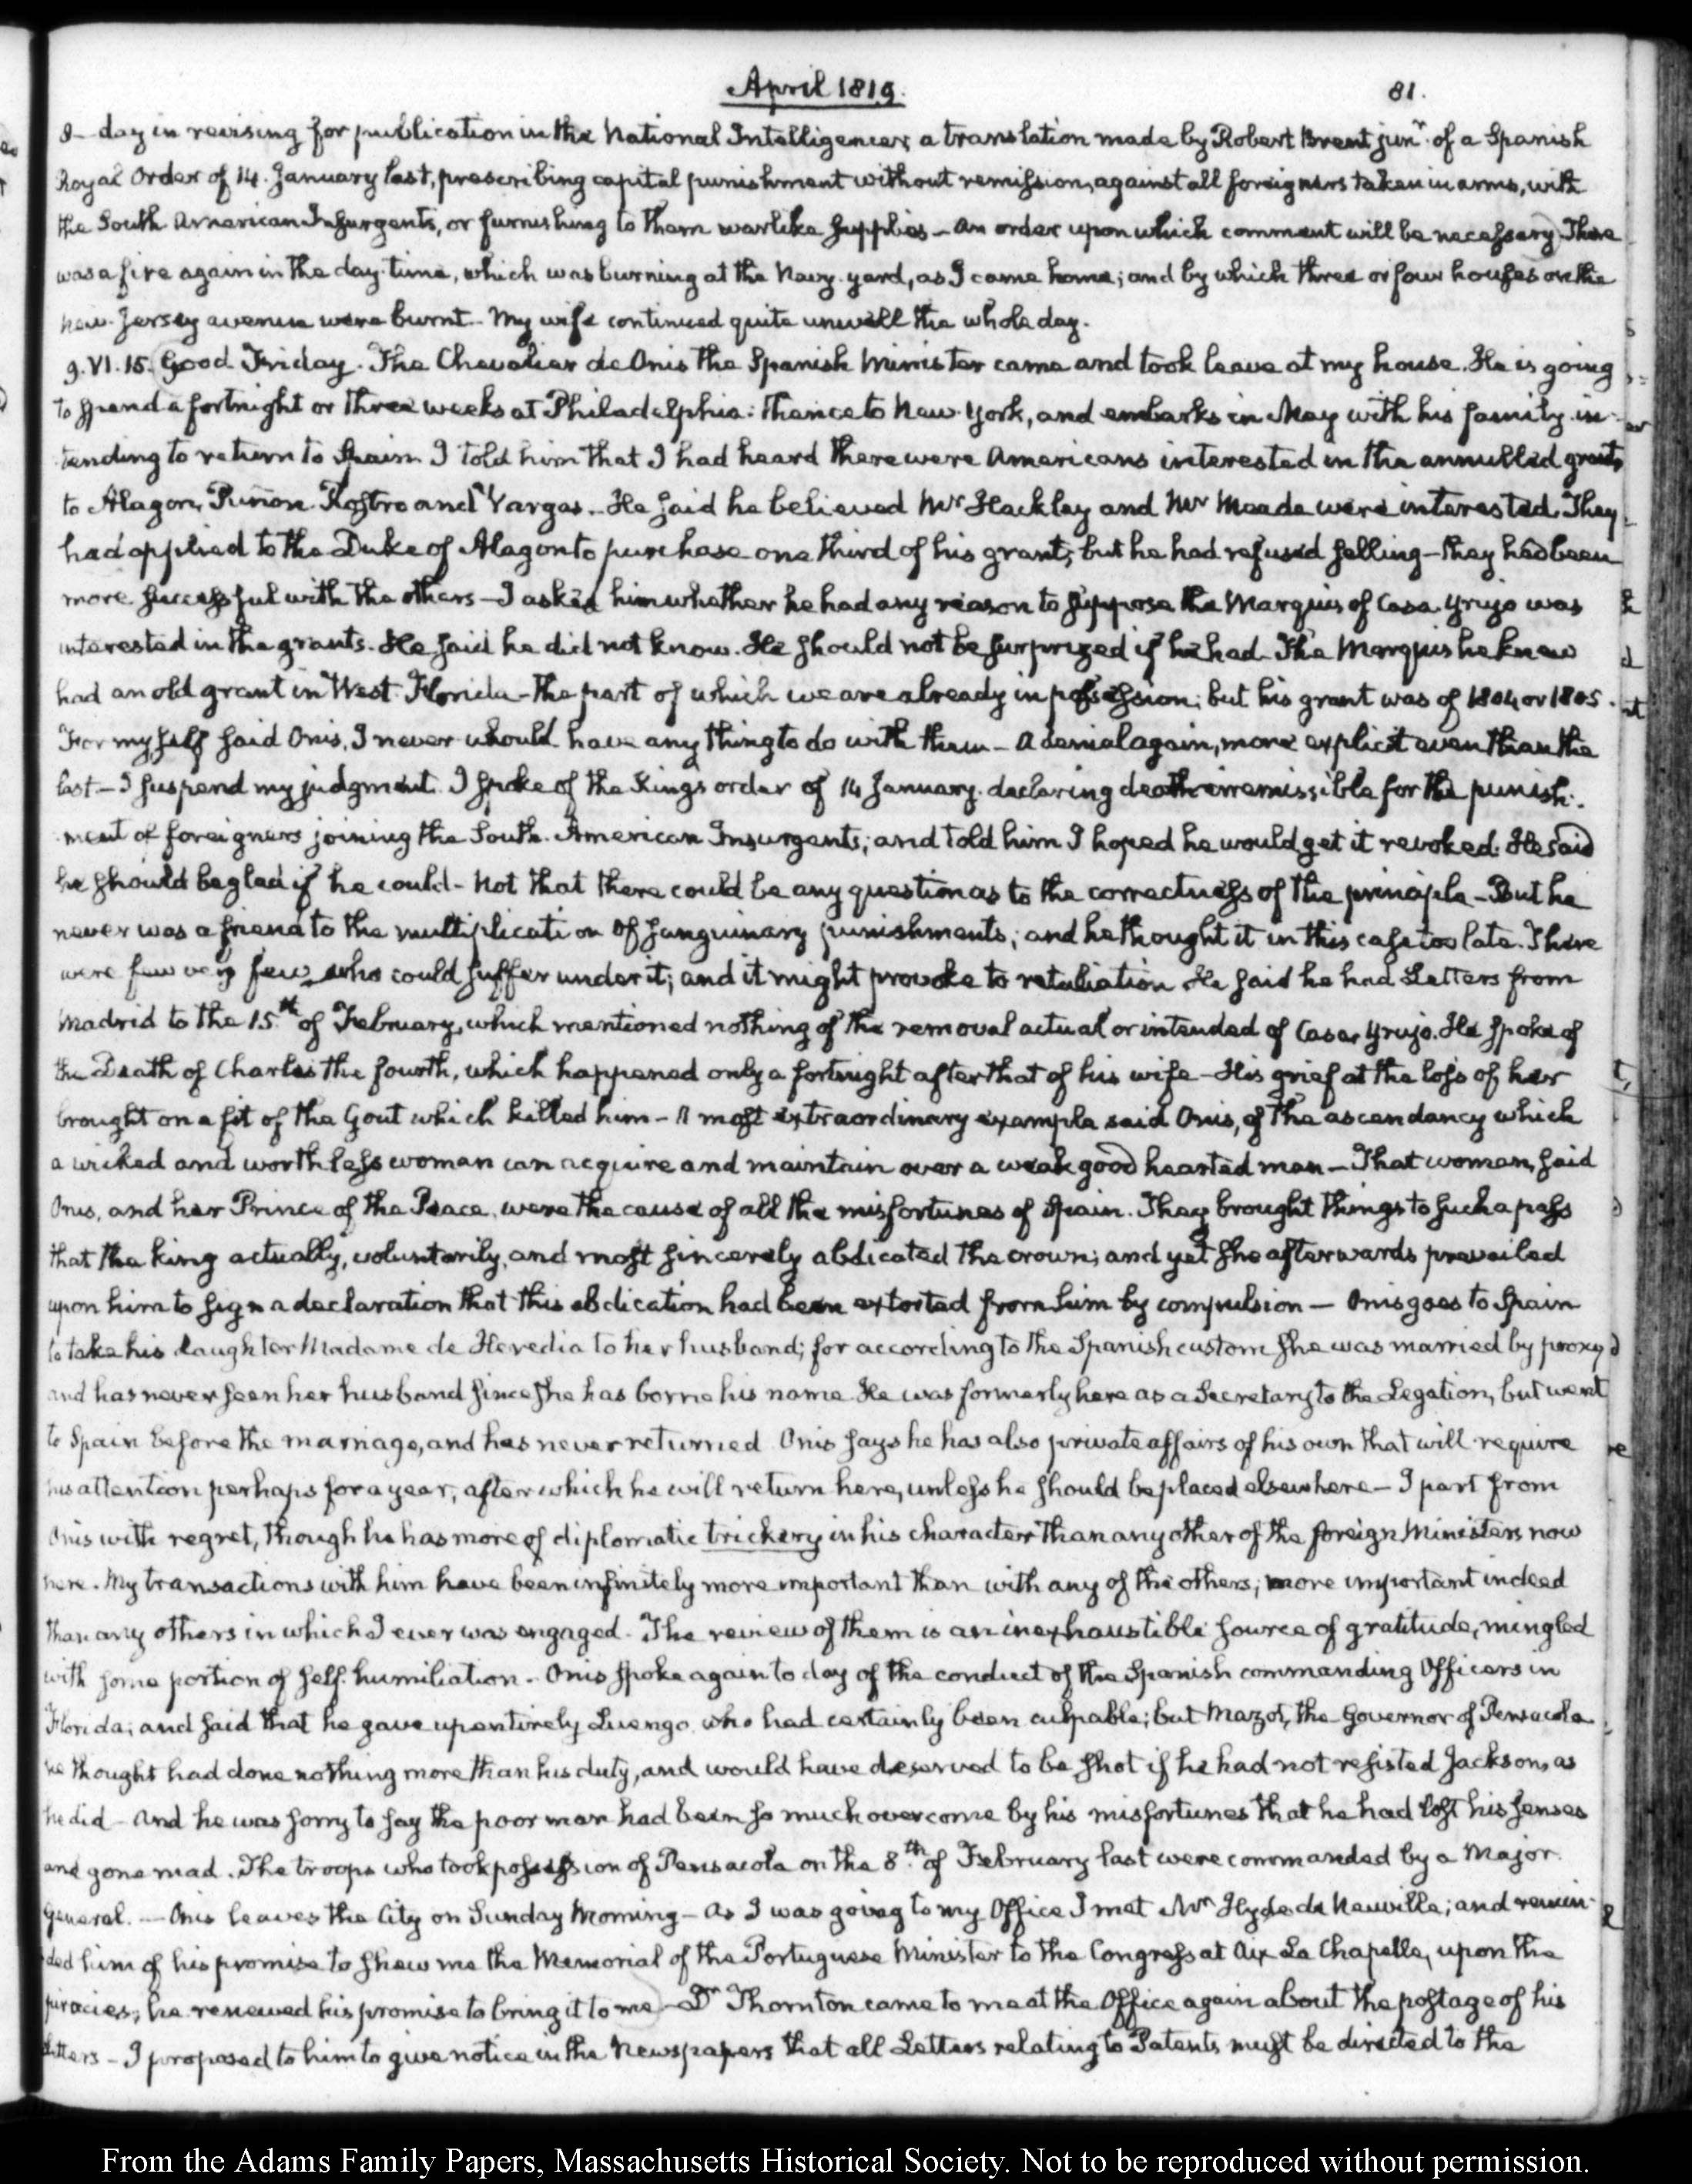 April 1819. 81.
day in revising for publication in the National Intelligencer, a translation made by Robert Brent junr. of a Spanish
Royal Order of 14. January last, prescribing capital punishment without remission, against all foreigners taken in arms, with
the South American Insurgents, or furnishing to them warlike supplies - An order upon which comment will be necessary There
was a fire again in the day-time, which was burning at the Navy-yard, as I came home; and by which three or four houses on the
new-Jersey avenue were burnt. My wife continued quite unwell the whole day.
9. VI. 15. Good Friday. The Chevalier de Onis the Spanish Minister came and took leave at my house. He is going
to spend a fortnight or three weeks at Philadelphia: thence to New-York, and embarks in May with his family in-
tending to return to Spain. I told him that I had heard there were Americans interested in the annulled grants
to Alagon, Puñon-Rostro and Vargas. - He said he believed Mr Hackley and Mr Meade were interested. They
had applied to the Duke of Alagon to purchase one third of his grant; but he had refused selling - they had been
more successful with the others - I asked him whether he had any reason to suppose the Marquis of Casa-Yrujo was
interested in the grants. He said he did not know. He should not be surprized if he had. The Marquis he knew
had an old grant in West-Florida - the part of which we are already in possession; but his grant was of 1804 or 1805.
For myself said Onis, I never would have any thing to do with them - A denial again, more explicit even than the
last - I suspend my judgment. I spoke of the King's order of 14 January declaring death irremissible for the punish-
ment of foreigners joining the South-American Insurgents; and told him I hoped he would get it revoked. He said
he should be glad if he could - Not that there could be any question as to the correctness of the principle - But he
never was a friend to the multiplication of sanguinary punishments; and he thought it in this case too late. There
were few very few who could suffer under it; and it might provoke to retaliation He said he had Letters from
Madrid to the 15.th of February, which mentioned nothing of the removal actual or intended of Casa-Yrujo. He spoke of
the Death of Charles the fourth, which happened only a fortnight after that of his wife - His grief at the loss of her
brought on a fit of the Gout which killed him - A most extraordinary example said Onis, of the ascendancy which
a wicked and worthless woman can acquire and maintain over a weak good hearted man - That woman, said
Onis, and her Prince of the Peace, were the cause of all the misfortunes of Spain. They brought things to such a pass
that the king actually, voluntarily, and most sincerely abdicated the crown; and yet she afterwards prevailed
upon him to sign a declaration that this abdication had been extorted from him by compulsion - Onis goes to Spain
to take his daughter Madame de Heredia to her husband; for according to the Spanish custom she was married by proxy
and has never seen her husband since she has borne his name. He was formerly here as a Secretary to the Legation, but went
to Spain before the marriage, and has never returned. Onis says he has also private affairs of his own that will require
his attention perhaps for a year, after which he will return here, unless he should be placed elsewhere - I part from
Onis with regret, though he has more of diplomatic trickery in his character than any other of the foreign Ministers now
here. My transactions with him have been infinitely more important than with any of the others; more important indeed
than any others in which I ever was engaged. The review of them is an inexhaustible source of gratitude, mingled
with some portion of self-humiliation. - Onis spoke again to day of the conduct of the Spanish commanding Officers in
Florida; and said that he gave up entirely Luengo who had certainly been culpable; but Mazot, the Governor of Pensacola
he thought had done nothing more than his duty, and would have deserved to be shot if he had not resisted Jackson, as
he did - And he was sorry to say the poor man had been so much overcome by his misfortunes that he had lost his senses
and gone mad. The troops who took possession of Pensacola on the 8.th of February last were commanded by a Major
General. - Onis leaves the City on Sunday Morning - As I was going to my Office I met Mr Hyde de Neuville; and remin-
ded him of his promise to shew me the Memorial of the Portuguese Minister to the Congress at Aix La Chapelle, upon the
piracies; he renewed his promise to bring it to me - Dr Thornton came to me at the Office again about the postage of his
Letters - I proposed to him to give notice in the Newspapers that all Letters relating to Patents must be directed to the
From the Adams Family Papers, Massachusetts Historical Society. Not to be reproduced without permission.